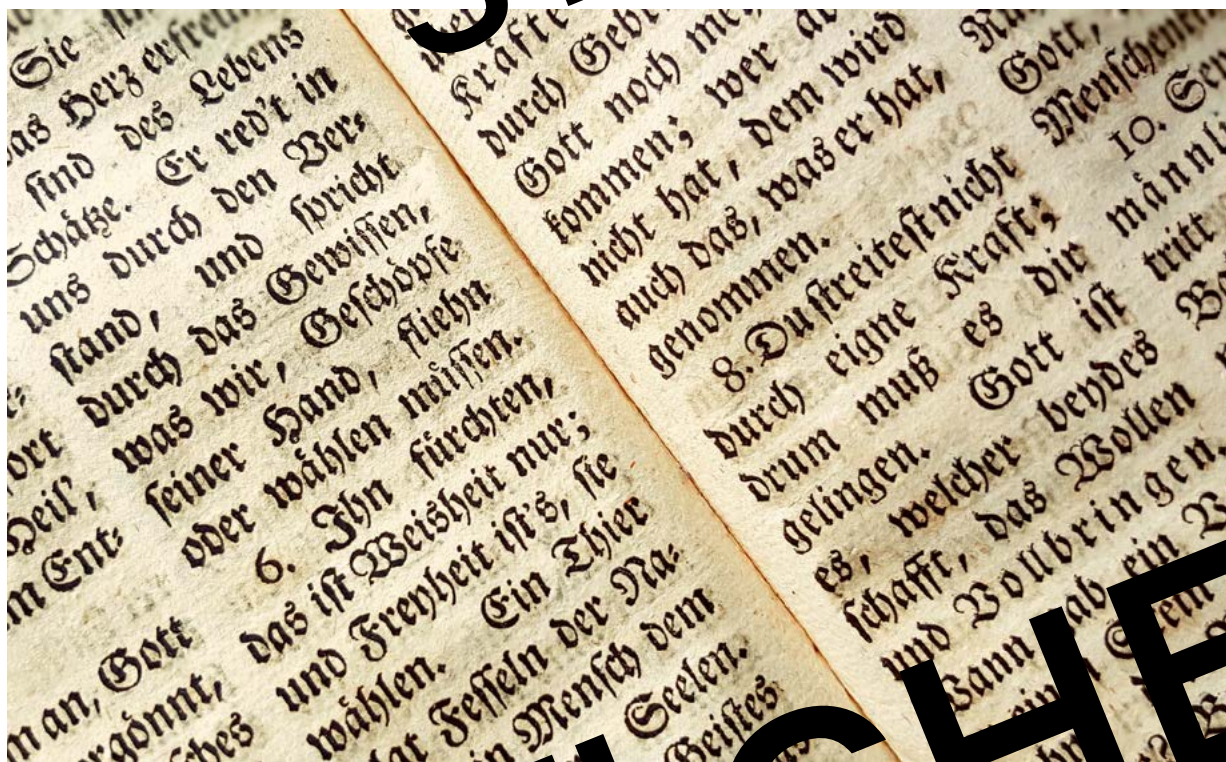 Sie
das Herz erfreun
sind des Lebens
Schätze. Er red't in
uns durch den Ver⸗
stand, und spricht
durch das Gewissen,
was wir, Geschöpfe
seiner Hand, fliehn
oder wählen müssen.
6. Ihn fürchten,
das ist Weisheit nur;
und Freyheit ist's, sie
wählen. Ein Thier
hat Fesseln der Na⸗
ein Mensch dem
Seelen.
Geistes
ort
Heil',
m Ent⸗
an, Gott
Kräfte
durch Geb
Gott noch
kommen; wer
nicht hat, dem wird
auch das, was er hat,
genommen.
8. Du streitest nicht
durch eigne Kraft;
drum muß es dir
gelingen. Gott ist
es, welcher beydes
schafft, das Wollen
und Vollbringen.
Wann ein
Gott,
Menschen
10.
männl
tritt
CHE